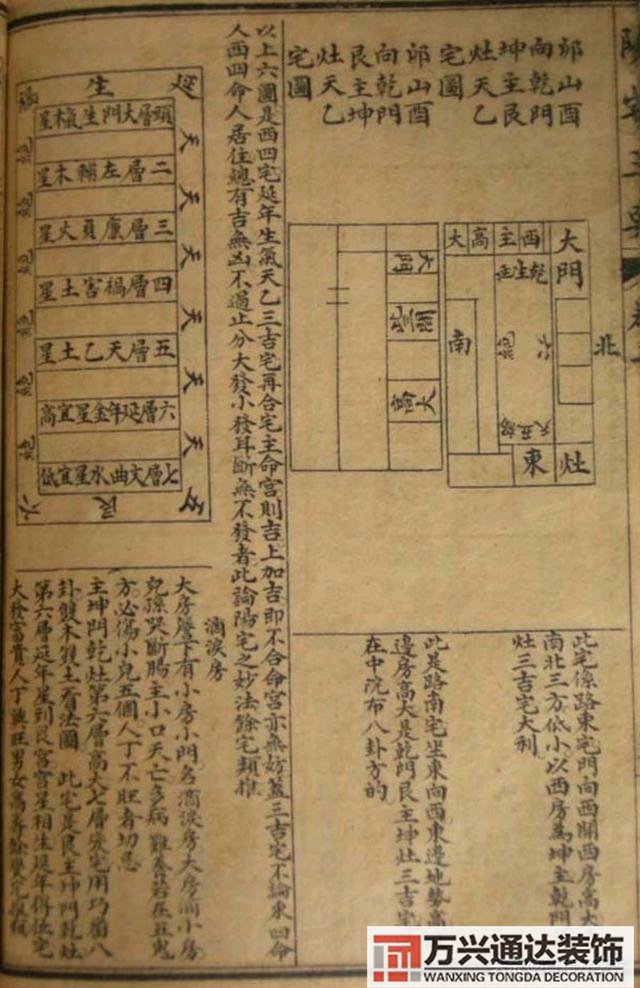 陽宅三要
卯山酉
向乾門
坤主艮
灶天乙
宅圖
卯山酉
向乾門
艮主坤
灶天乙
宅圖
大門
北
灶
西主高大
乾生延
六
天五
南
東
大門
高大
此宅係路東宅門向西開西房高大
南北三方低小以西房為坤主乾門
灶三吉宅大利
此是路南宅坐東向西東邊地勢高
邊房高大是乾門艮主坤灶三吉宅
在中院布八卦方的
以上六圖是西四宅延年生氣天乙三吉宅再合宅主命宮則吉上加吉即不合命宮亦無妨蓋三吉宅不論東四命
人西四命人居住總有吉無凶不過止分大發小發耳斷無不發者此論陽宅之妙法餘宅類推
延生禍
頭層大門生氣木星
二層左輔木星
三層廉貞火星
四層禍害土星
五層天乙土星
六層延年金星宜高
七層文曲水星宜低
天
天
天
天
天
天
絕
絕
絕
絕
絕
絕
五艮六
滴淚房
大房簷下有小房小門名滴淚房大房滴小房
兒孫哭斷腸主小口夭亡多病難養若在五鬼
方必傷小兒五個人丁不旺者切忌
主坤門乾灶第六層高大七層變宅用巧番八
卦雙木雙土看法圖 此宅是艮主坤門乾灶
第六層延年星到艮宮宮星相生延年得位宅
大發富貴人丁興旺男女高壽餘變宅
万兴通达装饰
WANXING TONGDA DECORATION